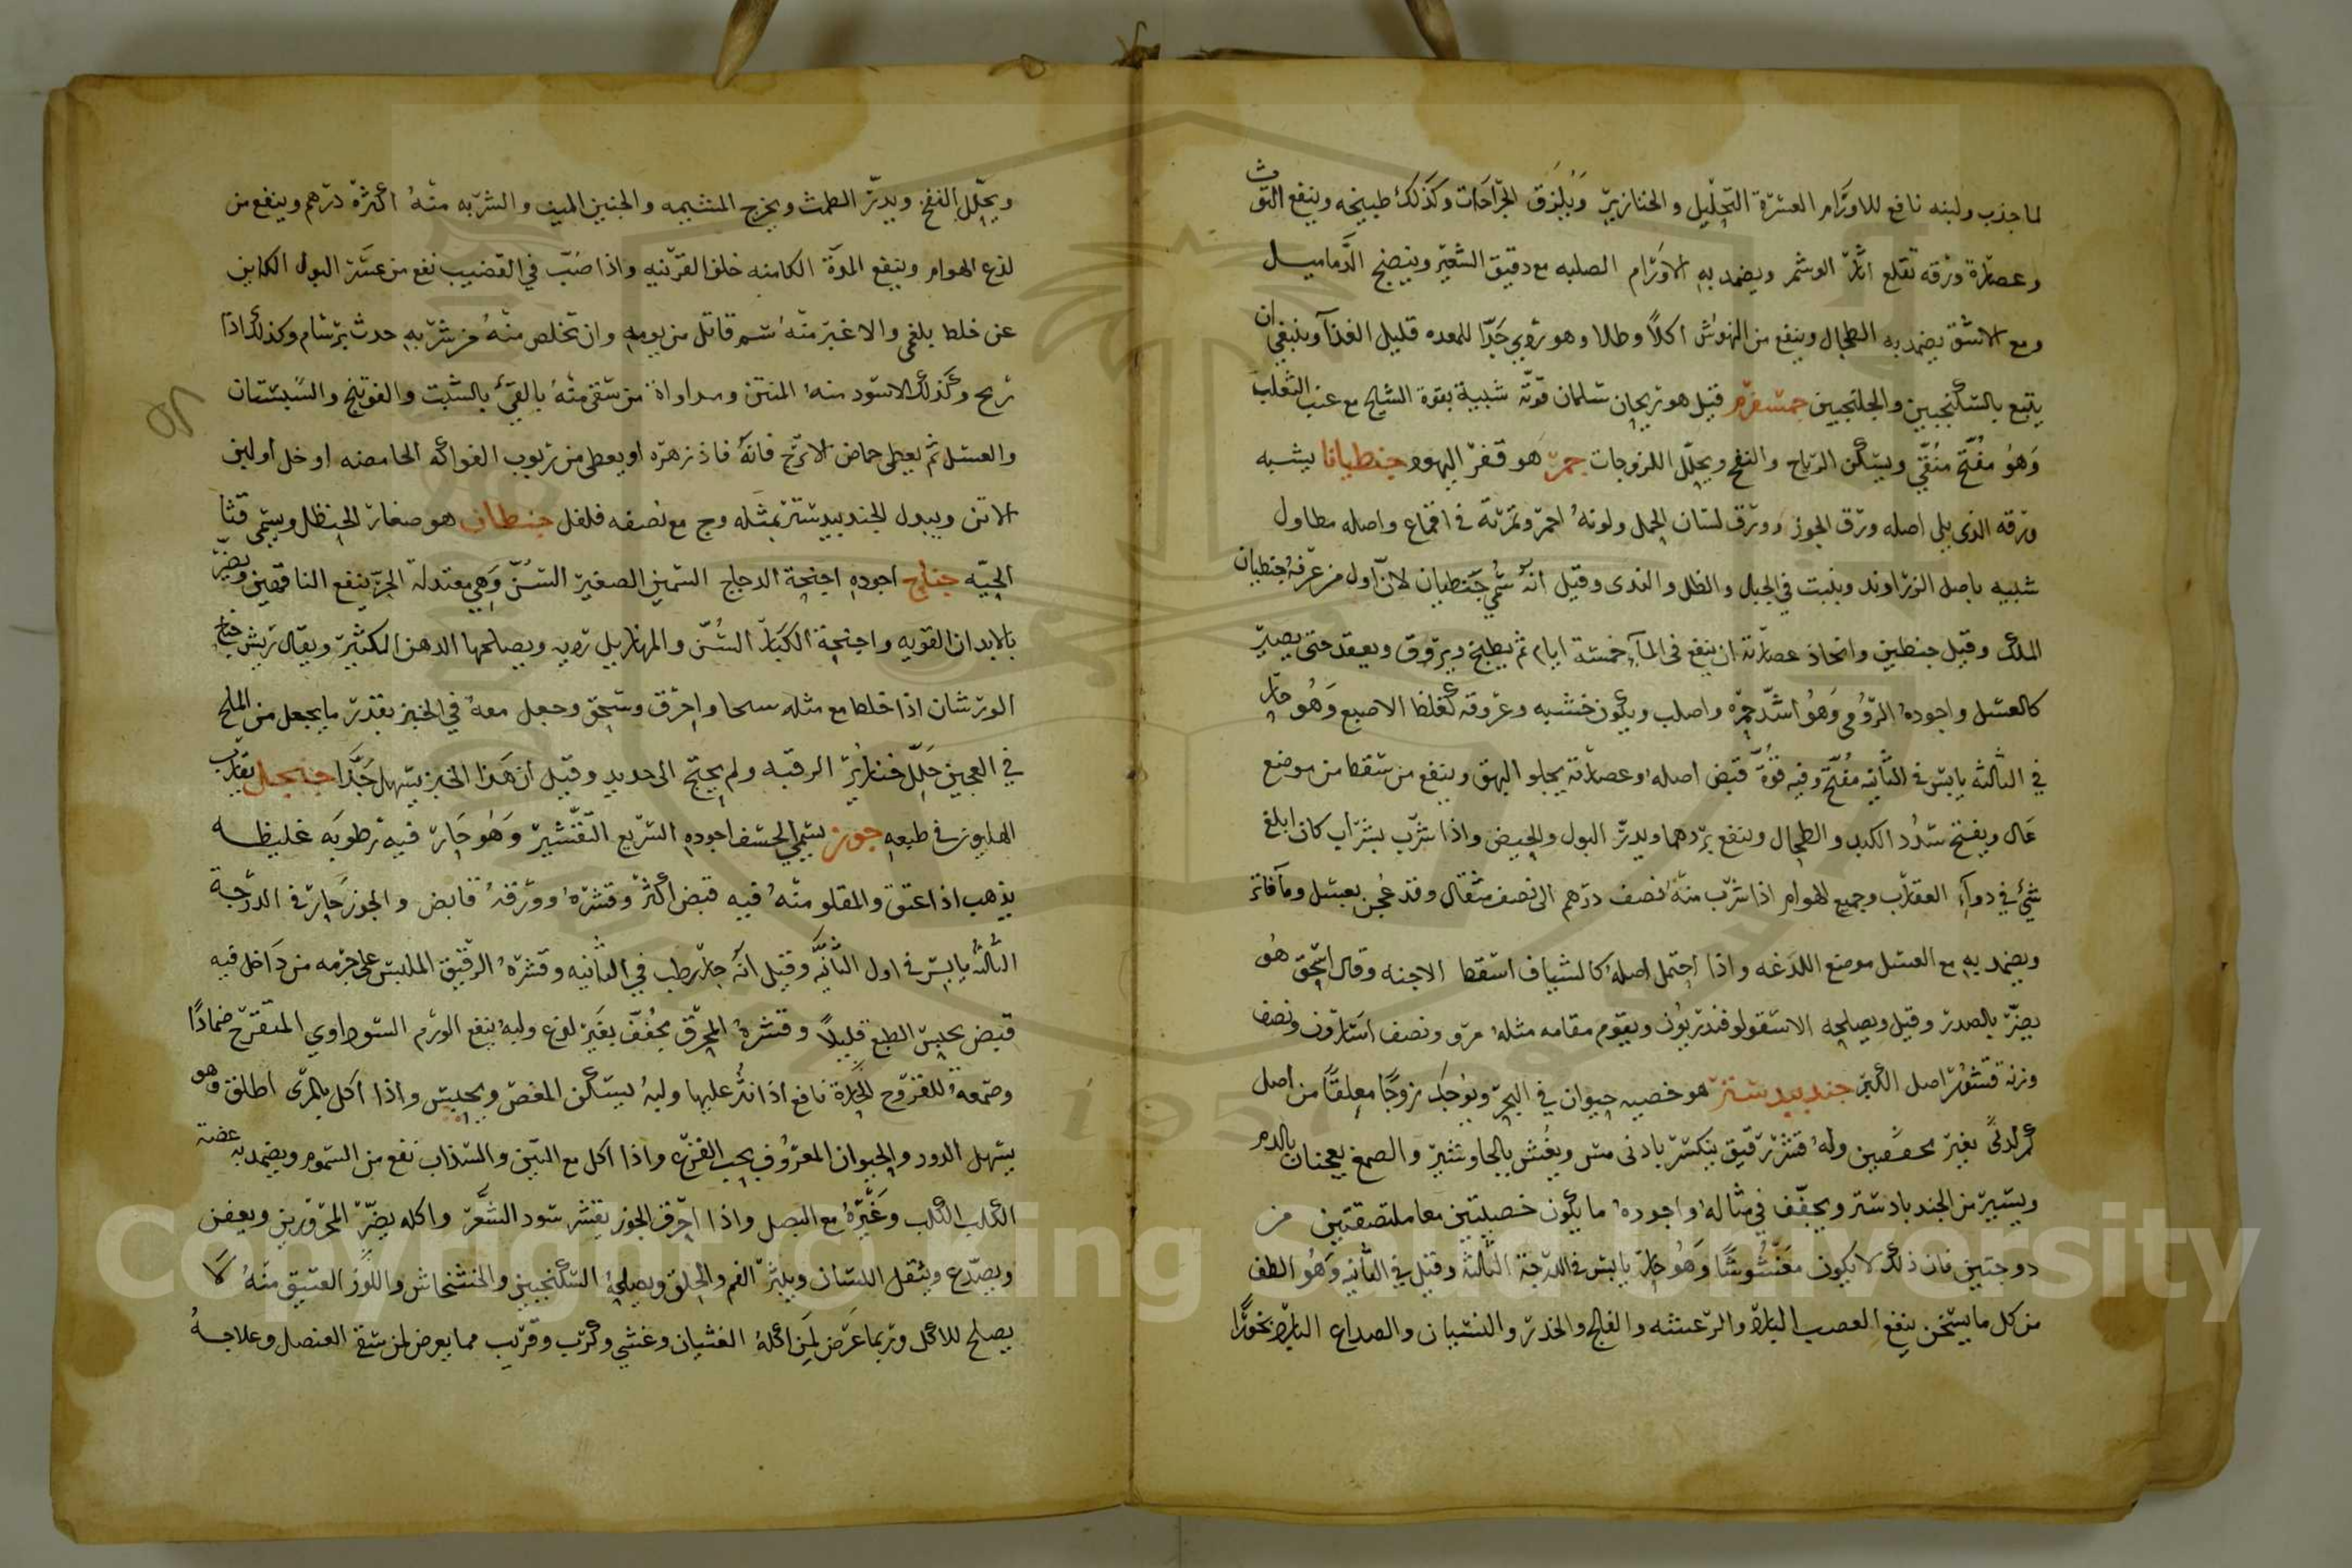 لما جذب ولبنه نافع للاورام العسرة التحليل والخنازير ويلزق الجراحات وكذلك طبيخه وينفع التوث
وعصارة ورقه تقلع اثار الوشم ويضمد به الاورام الصلبه مع دقيق الشعير وينضج الدماميل
ومع الاشق يضمد به الطحال وينفع من النهوش اكلا وطلا وهو ردي جدا للمعده قليل الغذآ وينبغي ان
يتبع بالسكنجبين والجلنجبين جمسفرم قيل هو ريحان سلمان قوته شبيهة بقوة الشيح مع عنب الثعلب
وهو مفتح منقي ويسكن الرياح والنفخ ويحلل اللزوجات جمر هو قفر اليهود جنطيانا يشبه
ورقه الذي يلي اصله ورق الجوز وورق لسان الحمل ولونه احمر وثمرته في اقماع واصله مطاول
شبيه باصل الزراوند وينبت في الجبال والظل والندى وقيل انه سمي جنطيان لان اول من عرفه جنطيان
الملك وقيل جنطين واتخاذ عصارته ان ينقع في المآء خمسة ايام ثم يطبخ ويروق ويعقد حتى يصير
كالعسل واجوده الرومي وهو اشد حمرة واصلب ويكون خشبه وعروقه كغلظ الاصبع وهو حار
في الثالثه يابس في الثانيه مفتح وفيه قوة قبض اصله وعصارته يجلو البهق وينفع من سقط من موضع
عال ويفتح سدد الكبد والطحال وينفع بردهما ويدر البول والحيض واذا شرب بشراب كان ابلغ
شيء في دوآء العقارب وجميع الهوام اذا شرب منه نصف درهم الى نصف مثقال وقد عجن بعسل ومآ فاتر
ويضمد به مع العسل موضع اللدغه واذا احتمل اصله كالشياف اسقط الاجنه وقال اسحق هو
يضر بالصدر وقيل ويصلحه الاسقولوفندريون ويقوم مقامه مثله مرة ونصف اسارون ونصف
وزنه قشور اصل الكبر جندبيدستر هو خصيه حيوان في البحر ويوجد زوجا معلقا من اصل
بغير محففين وله قشر رقيق ينكسر بادنى مس ويغش بالجاوشير والصمغ يعجنان بالدم
ويسير من الجندبادستر ويجفف في مثاله واجوده ما يكون خصيتين معا ملتصقتين من
دوجتين فان ذلك لا يكون مغشوشا وهو حار يابس في الدرجة الثالثه وقيل في الثانيه وهو الطف
من كل ما يسخن ينفع العصب البارد والرعشه والفالج والخدر والنسيان والصداع البارد بخورا
ويحلل النفخ ويدر الطمث ويخرج المشيمه والجنين الميت والشربه منه اكثره درهم وينفع من
لذع الهوام وينفع المدة الكامنه خلف القرنيه واذا صب في القضيب نفع من عسر البول الكاين
عن خلط بلغمي والاغبر منه سم قاتل من يومه وان تخلص منه من شربه حدث برسام وكذلك اذا
ريح وكذلك الاسود منه المنتن ومداواة من سقي منه بالقيء بالشبت والفوتنج والسبستان
والعسل ثم يعطى حماض الاترج فانه فاذ زهره او يعطى من ربوب الفواكه الحامضه او خل او لبن
الاتن ويبدل الجندبيدستر بمثله وج مع نصفه فلفل جنطاف هو صغار الحنظل ويسمى قثا
الحيه جناح اجوده اجنحة الدجاج السمين الصغير السن وهي معتدلة الحر ينفع الناقهين ويضر
بالابدان القويه واجنحة الكبار السن والمهازيل رديه ويصلحها الدهن الكثير ويقال ريش جناح
الورشان اذا خلط مع مثله واحرق وسحق وجعل معه في الخبز بقدر ما يجعل من الملح
في العجين حلل خنازير الرقبه ولم يحتج الى حديد وقيل ان هذا الخبز يسهل جدا جنجل يقارب
الهليون في طبعه جوز يسمى الخسف اجوده السريع التقشير وهو حار فيه رطوبه غليظه
يذهب اذا عتق والمقلو منه فيه قبض اكثر وقشره وورقه قابض والجوز حار في الدرجة
الثالثه يابس في اول الثانيه وقيل انه حار رطب في الثانيه وقشره الرقيق الملبس على جرمه من داخل فيه
قبض يحبس الطبع قليلا وقشره المحرق يجفف بغير لذع ولبه ينفع الورم السوداوي المتقرح ضمادا
وصمغه للقروح الحارة نافع اذا نثر عليها ولبه يسكن المغص ويحبس واذا اكل بالمرى اطلق وهو
يسهل الدود والحيوان المعروف بحب القرع واذا اكل مع التين والسذاب نفع من السموم ويضمد به عضة
الكلب الكلب وغيره مع البصل واذا احرق الجوز بقشر سود الشعر واكله يضر المحرورين ويعفن
ويصدع ويثقل اللسان ويبثر الفم والحلق ويصلحه السكنجبين والخشخاش واللوز العتيق منه لا
يصلح للاكل وربما عرض لمن اكله الغثيان وغشي وكرب وقريب مما يعرض لمن سقي العنصل وعلاجه